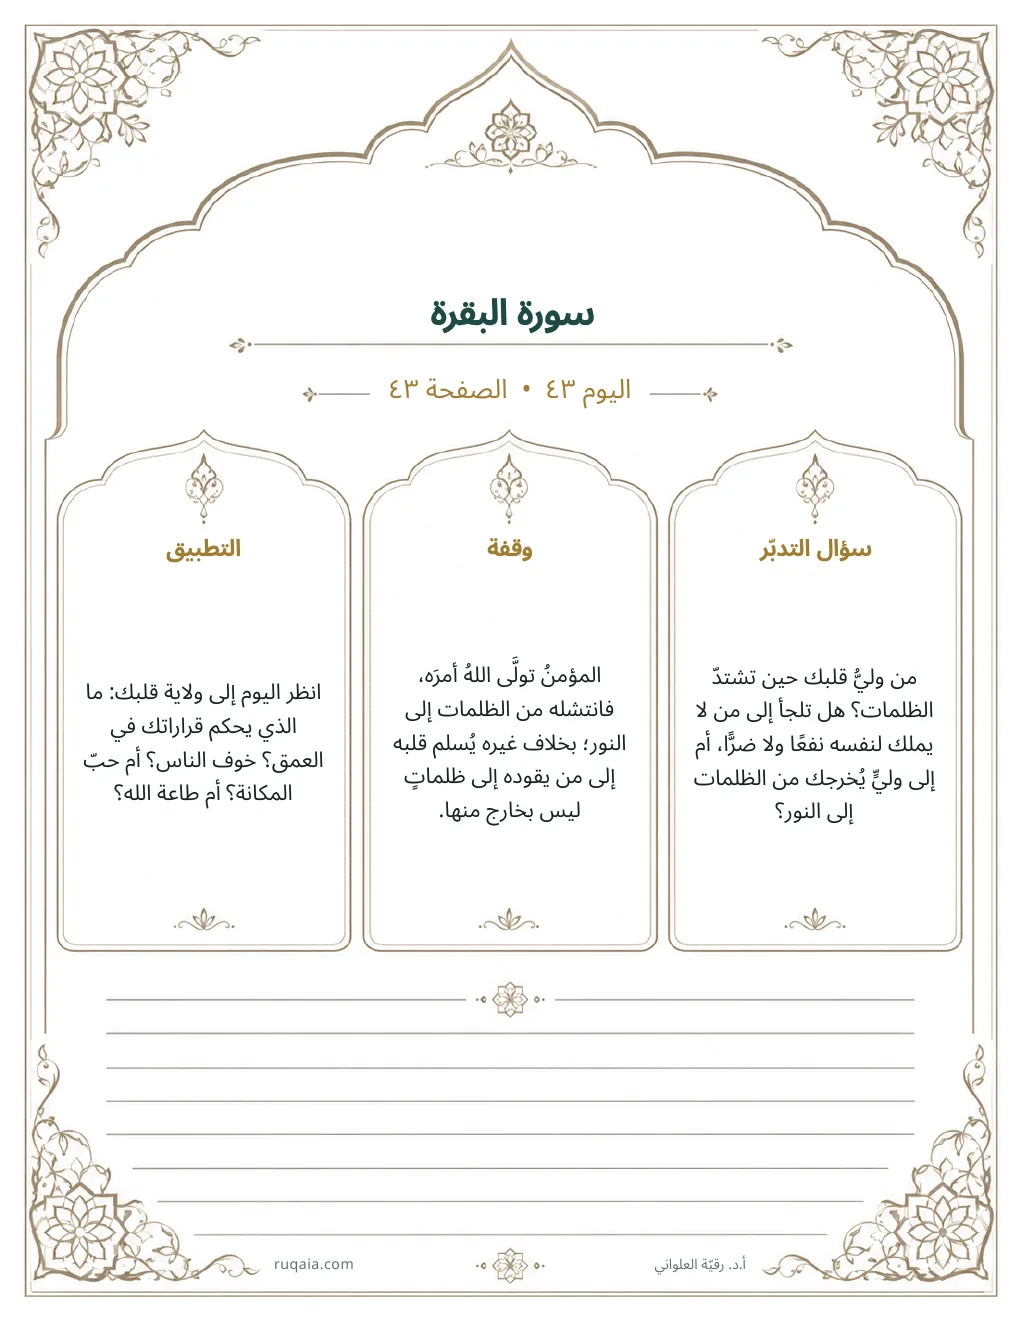 سورة البقرة
اليوم ٤٣ • الصفحة ٤٣
سؤال التدبّر
من وليُّ قلبك حين تشتدّ
الظلمات؟ هل تلجأ إلى من لا
يملك لنفسه نفعًا ولا ضرًّا، أم
إلى وليٍّ يُخرجك من الظلمات
إلى النور؟
وقفة
المؤمنُ تولَّى اللهُ أمرَه،
فانتشله من الظلمات إلى
النور؛ بخلاف غيره يُسلم قلبه
إلى من يقوده إلى ظلماتٍ
ليس بخارج منها.
التطبيق
انظر اليوم إلى ولاية قلبك: ما
الذي يحكم قراراتك في
العمق؟ خوف الناس؟ أم حبّ
المكانة؟ أم طاعة الله؟
أ.د. رقيّة العلواني
ruqaia.com